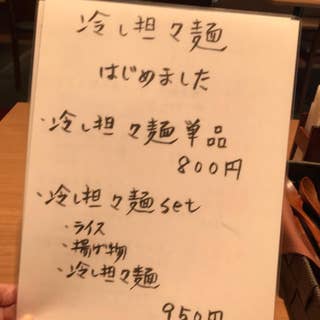 冷し担々麺
はじめました
・冷し担々麺単品
800円
・冷し担々麺set
・ライス
・揚げ物
・冷し担々麺
950円